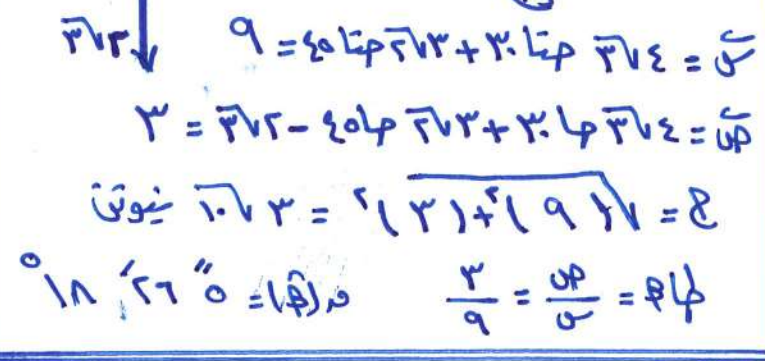 ٢√٣
س = ٤√٣ جتا ٣٠ + ٣√٢ جتا ٤٥ = ٩
ص = ٤√٣ جا ٣٠ + ٣√٢ جا ٤٥ - ٢√٣ = ٣
ح = √(٩)٢ + (٣)٢ = ٣√١٠ نيوتن
طا هـ = ص/س = ٣/٩ ق(هـ) = ٥ ً ٢٦ َ ١٨ ْ